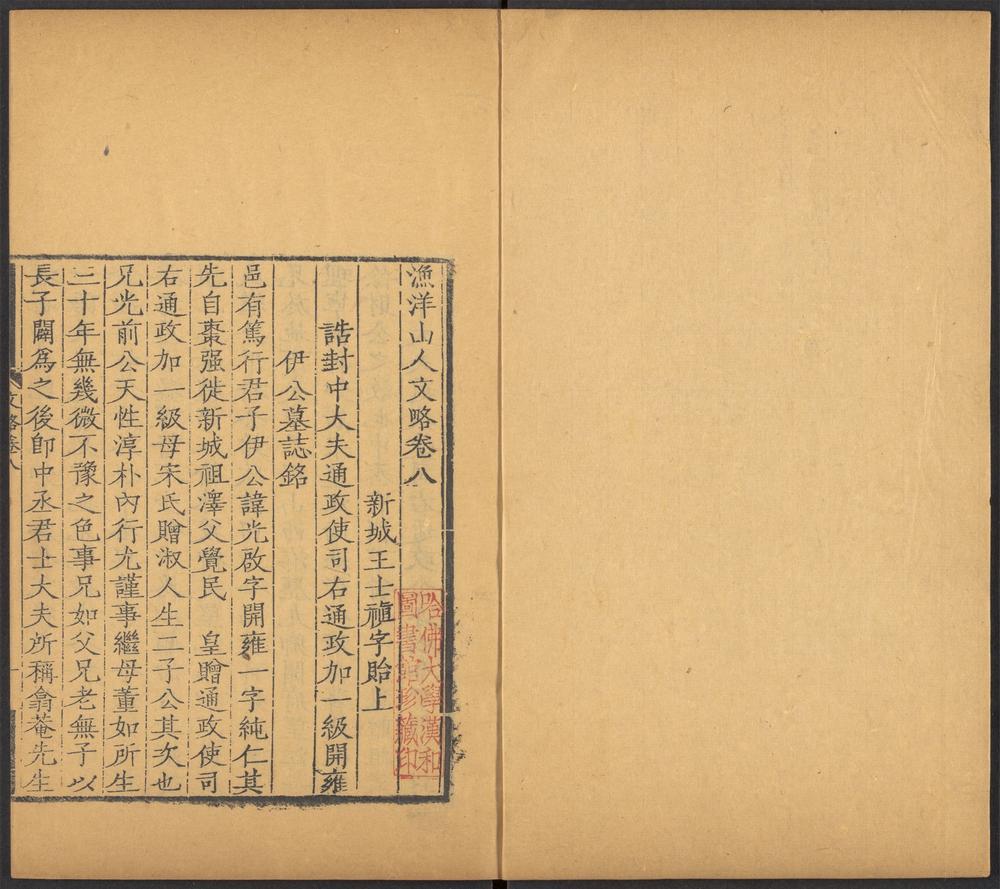 漁洋山人文略卷八
新城王士禛字貽上
誥封中大夫通政使司右通政加一級開雍
伊公墓誌銘
邑有篤行君子伊公諱光啟字開雍一字純仁其
先自棗强徙新城祖澤父覺民 皇贈通政使司
右通政加一級母宋氏贈淑人生二子公其次也
兄光前公天性淳朴內行尤謹事繼母董如所生
三十年無幾微不豫之色事兄如父兄老無子以
長子闢為之後卽中丞君士大夫所稱翕菴先生
文略卷八
哈佛大學漢和
圖書館珍藏印